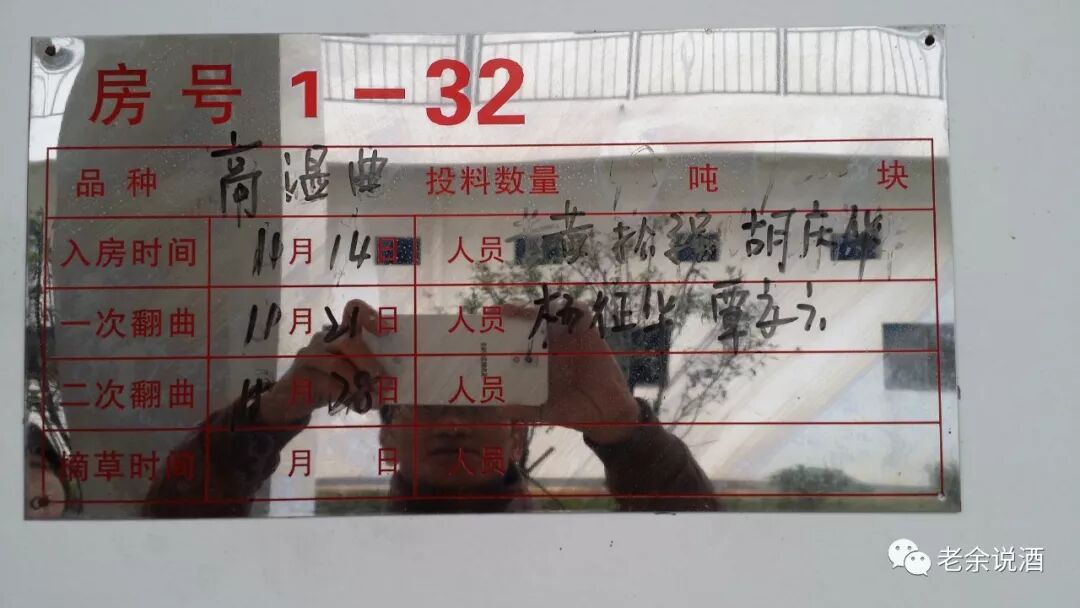 房号 1－32
品种 高温曲 投料数量 吨 块
入房时间 11月14日 人员 黄松强 胡庆华
一次翻曲 11月21日 人员 杨征华 覃
二次翻曲 11月28日 人员
摘草时间 月 日 人员
老余说酒